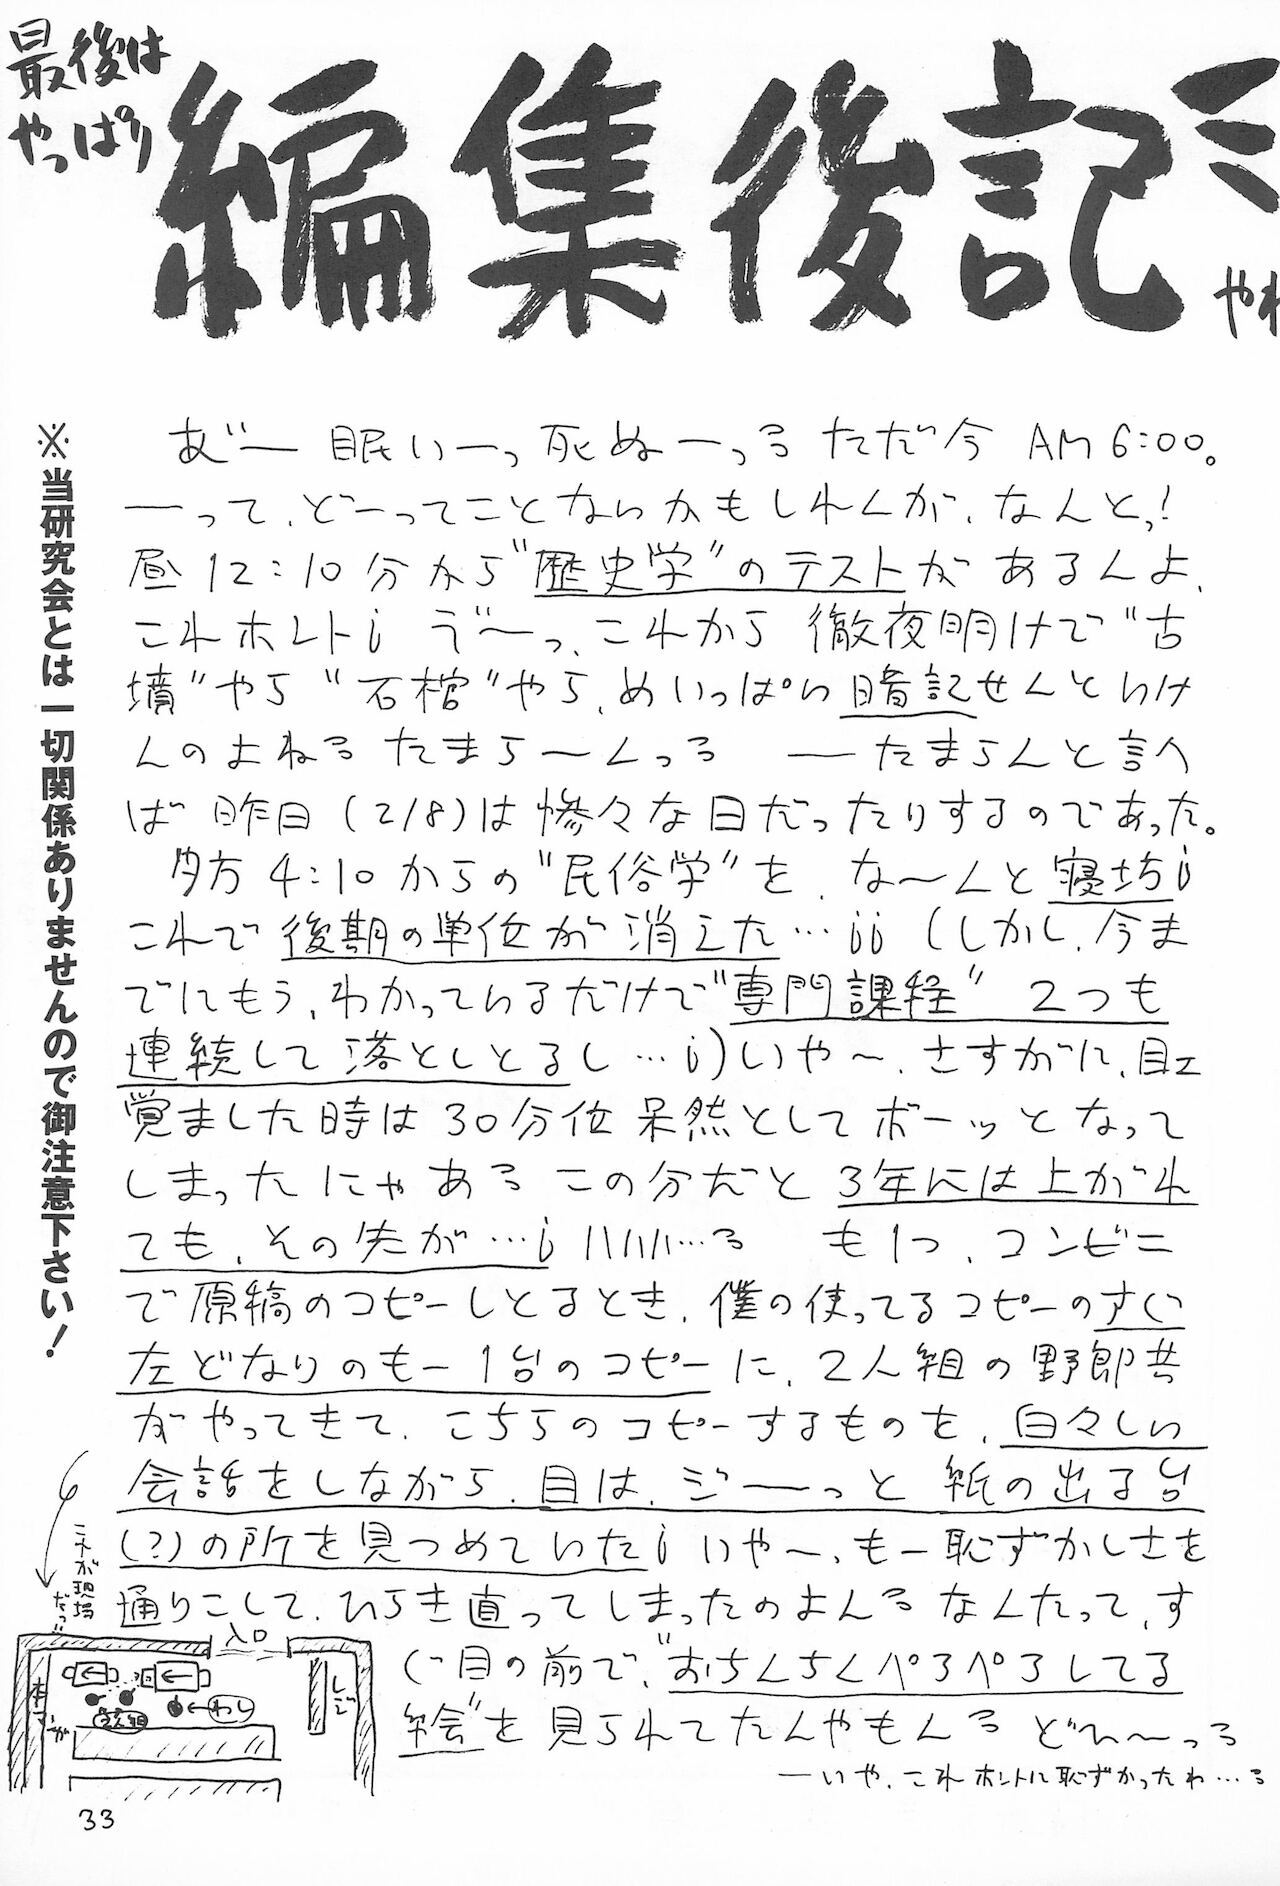 最後は
やっぱり
編集後記ミ
やれ
※当研究会とは一切関係ありませんので御注意下さい！
あ゛〜 眠いーっ死ぬーっろ ただ今 AM 6:00。
―って、どーってことないかもしれんが、なんとっ!
昼12:10分から"歴史学"のテストがあるんよ、
これホントi う゛〜っ、これから 徹夜明けで"古
墳"やら"石棺"やら、めいっぱい暗記せんといけ
んのよねろ たまら〜んっろ ―たまらんと言へ
ば 昨日(2/8)は惨々な日だったりするのであった。
夕方 4:10からの"民俗学"を、な〜んと寝坊i
これで後期の単位が消えた…ii (しかし、今ま
でにもう、わかっているだけで"専門課程" 2つも
連続して落としとるし…i)いや〜、さすがに、目エ
覚ました時は30分位呆然としてボーッとなって
しまったにゃあろ この分だと3年には上がれ
ても、その先が…i ハハハ…ろ も1つ、コンビニ
で原稿のコピーしとるとき、僕の使ってるコピーのすぐ
左どなりのもー1台のコピーに、2人組の野郎共
がやってきて、こちらのコピーするものを、白々しい
会話をしながら、目は、ジーーっと 紙の出る台
(?)の所を見つめていたi いや〜、もー恥ずかしさを
通りこして、ひらき直ってしまったのよんろ なんたって、す
ぐ目の前で、"おちんちんペろペろしてる
絵"を見られてたんやもんろ どひ〜っろ
―いや、これホントに恥ずかったわ…ろ
これが現場
だっ
入口
本
レジ
わし
33